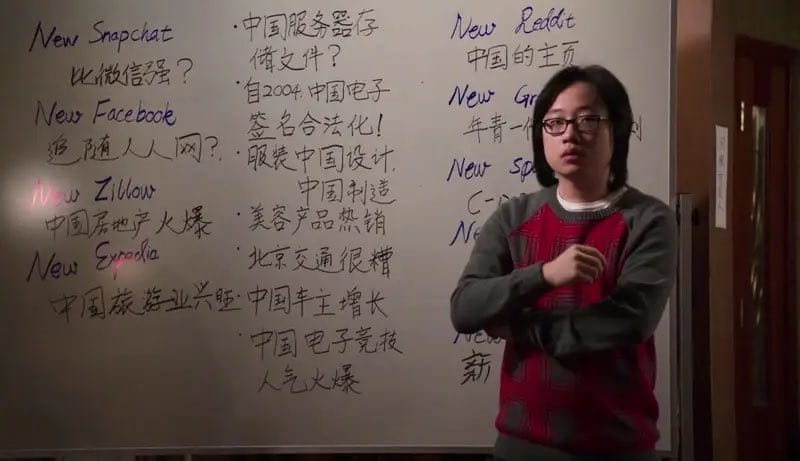 New Snapchat
比微信强？
New Facebook
追随人人网？
New Zillow
中国房地产火爆
New Expedia
中国旅游业兴旺
·中国服务器存
储文件？
·自2004，中国电子
签名合法化！
·服装中国设计，
中国制造
·美容产品热销
·北京交通很糟
·中国车主增长
·中国电子竞技
人气火爆
New Reddit
中国的主页
New
年青一
New
New
新